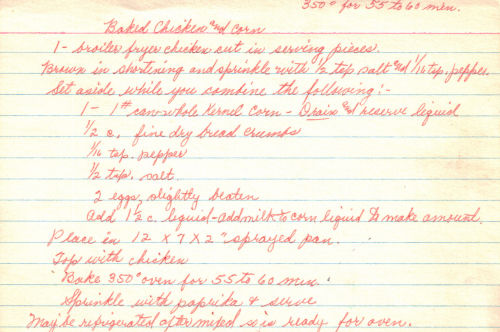 350° for 55 to 60 min.
Baked Chicken and Corn
1- broiler fryer chicken cut in serving pieces.
Brown in shortening and sprinkle with 1/2 tsp salt and 1/16 tsp. pepper.
Set aside while you combine the following:-
1- 1# can whole Kernel Corn - Drain and reserve liquid
1/2 c. fine dry bread crumbs
1/16 tsp. pepper
1/2 tsp. salt
2 eggs, slightly beaten
Add 1 1/2 c. liquid-add milk to corn liquid to make amount.
Place in 12 x 7 x 2" sprayed pan.
Top with chicken
Bake 350° oven for 55 to 60 min.
Sprinkle with paprika & serve
May be refrigerated after mixed so is ready for oven.